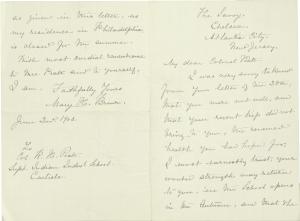 The Savoy,
Chelsea,
Atlantic City,
New Jersey.
My dear Colonel Pratt
I was very sorry to learn
from your letter of the 28th,
that you were not well, and
that your recent trip did not
bring to you, the renewed
health you had hoped for;
I most earnestly trust, your
wonted strength may return
to you, ere the School opens
in the Autumn, and that the
as given in this letter, as
my residence in Philadelphia
is closed for the summer.
With most cordial remembrance
to Mrs. Pratt and to yourself,
I am. Faithfully Yours
Mary H. Brown.
June 2nd 1902.
To
Col. R. H. Pratt.
Supt. Indian Indust. School.
Carlisle.